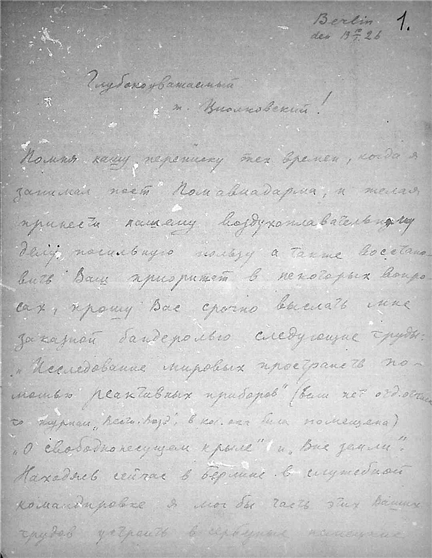 Berlin 1.
den 13 26
Глубокоуважаемый
т. Циолковский!
Помня нашу переписку тех времен, когда я
занимал пост Помавиадарма, и желая
принести нашему воздухоплавательному
делу посильную пользу а также восстано-
вить Ваш приоритет в некоторых вопро-
сах, прошу Вас срочно выслать мне
заказной бандеролью следующие труды:
„Исследование мировых пространств по-
мощью реактивных приборов" (если нет
то журнал „Вестн. Возд", в кот. была помещена)
„О свободнонесущем крыле" и „Вне земли".
Находясь сейчас в Берлине в служебной
командировке я мог бы часть этих Ваших
трудов устроить в немецкие